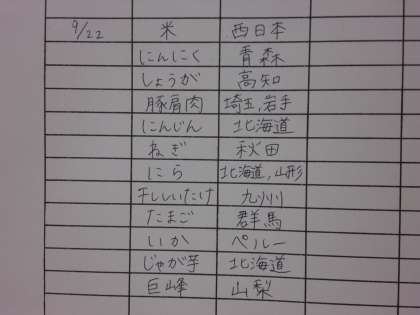 9/22 米 西日本
にんにく 青森
しょうが 高知
豚肩肉 埼玉,岩手
にんじん 北海道
ねぎ 秋田
にら 北海道,山形
干ししいたけ 九州
たまご 群馬
いか ペルー
じゃが芋 北海道
巨峰 山梨